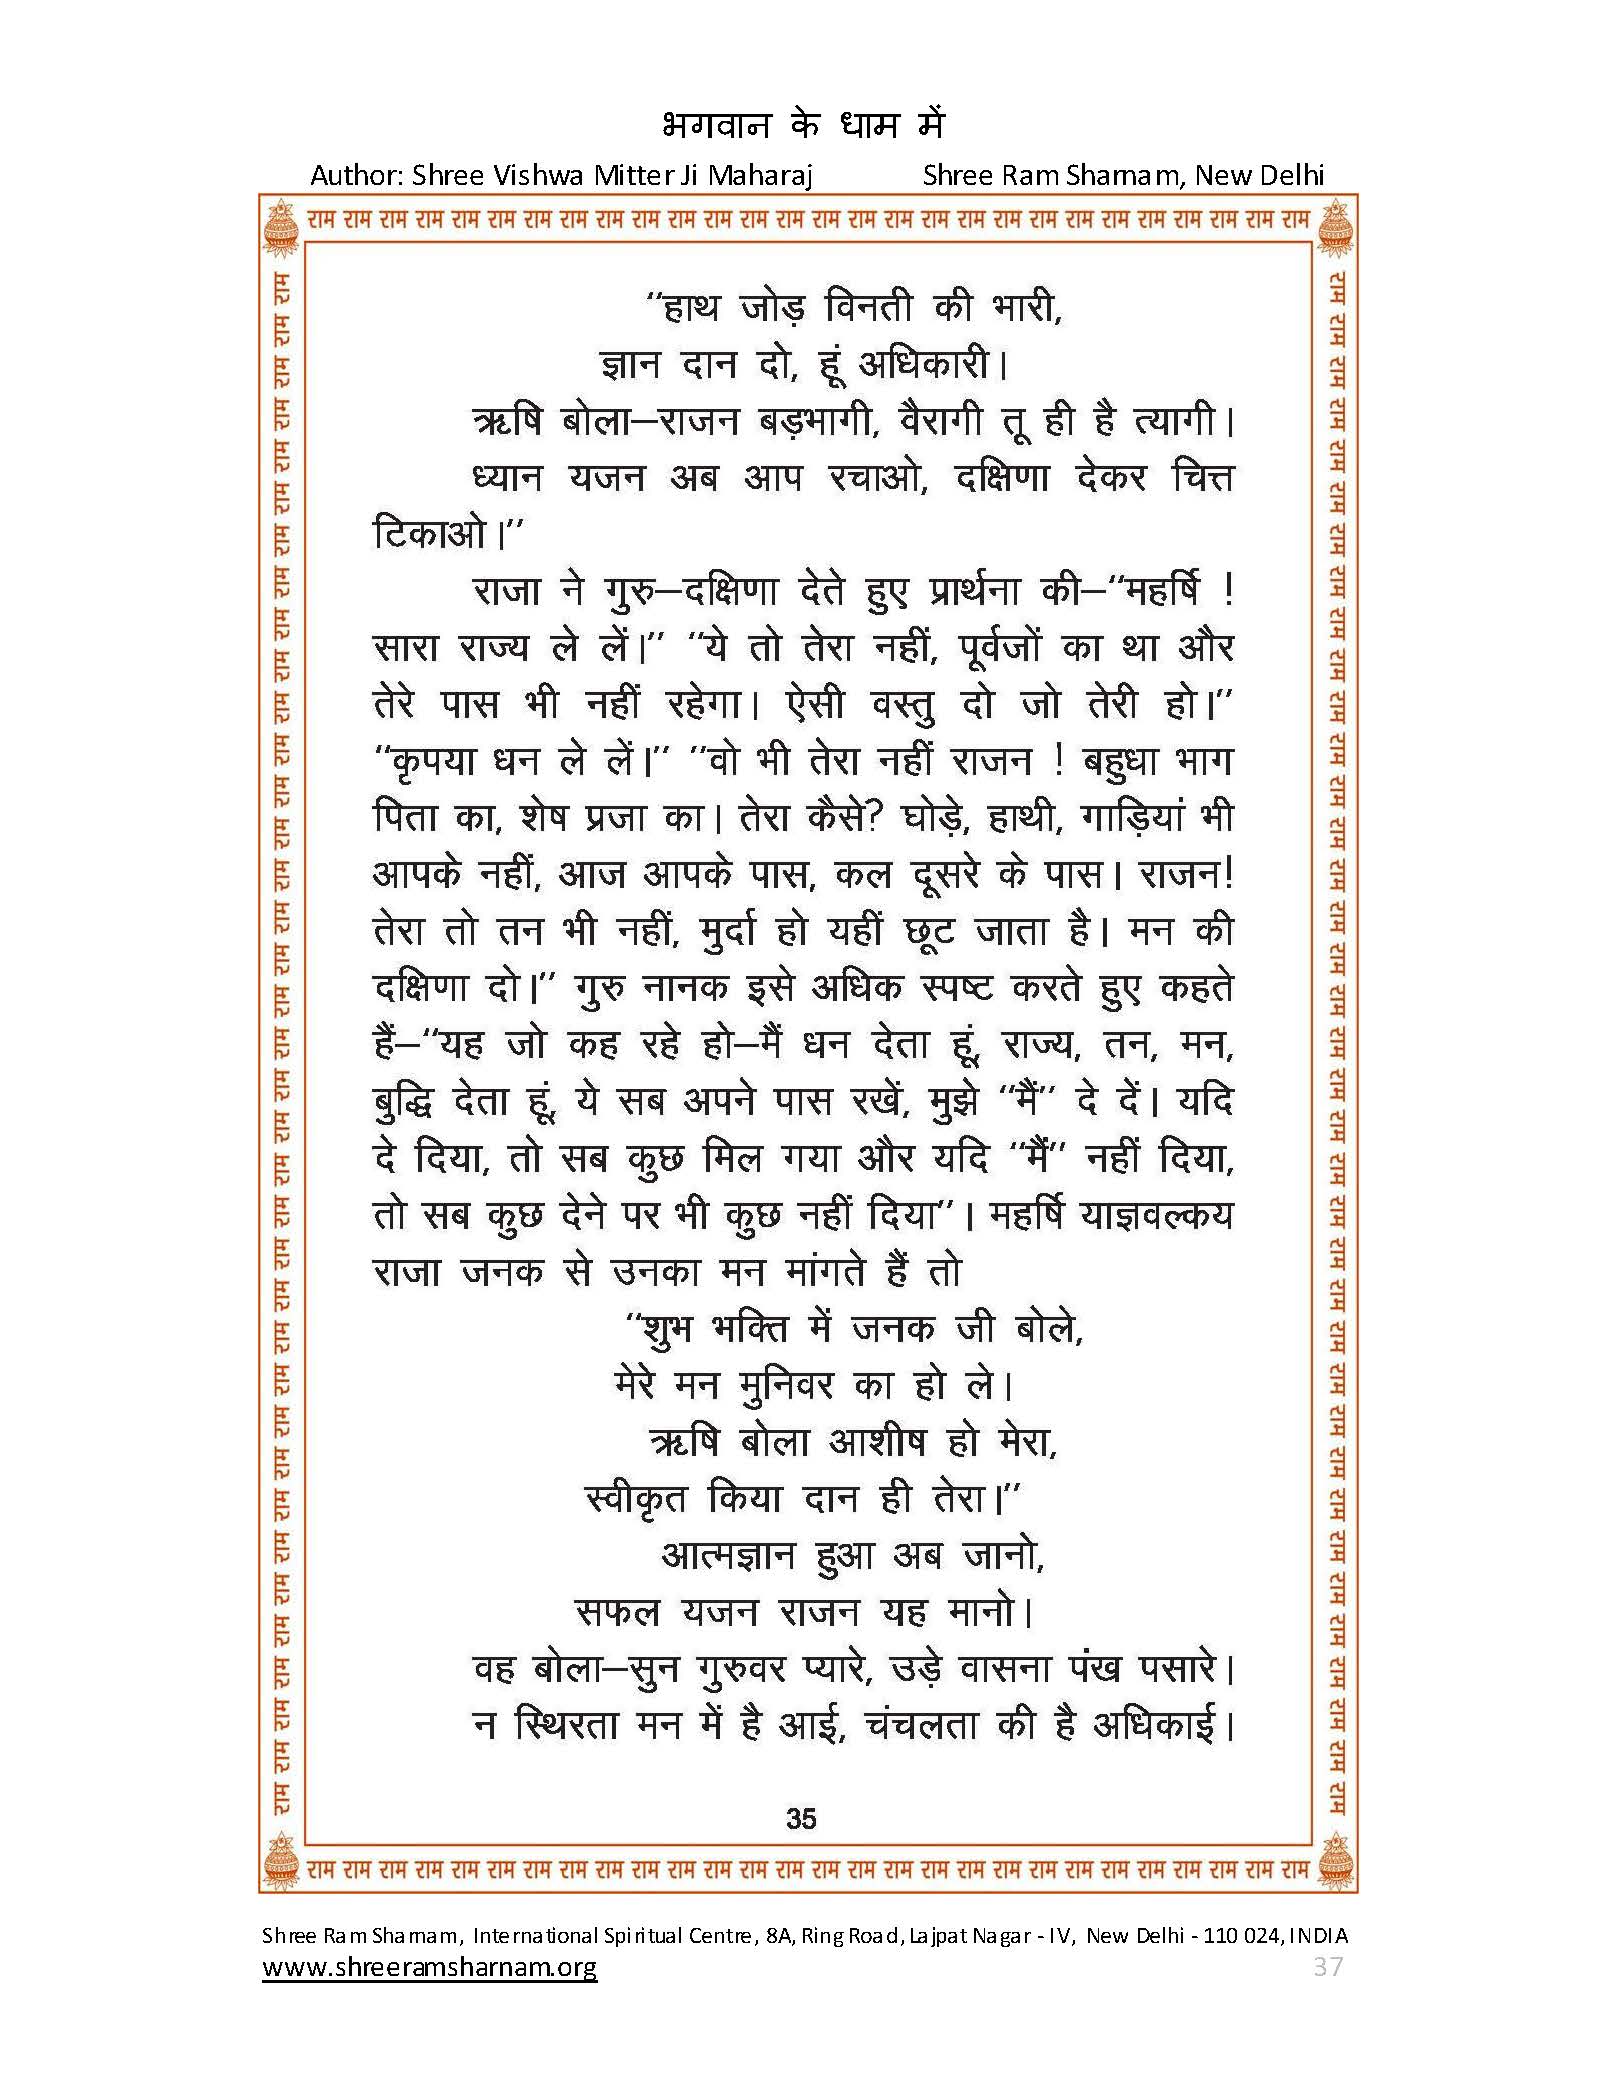 भगवान के धाम में
Author: Shree Vishwa Mitter Ji Maharaj Shree Ram Sharnam, New Delhi
राम राम राम राम राम राम राम राम राम राम राम राम राम राम राम राम राम राम राम राम राम राम राम राम राम राम राम राम
‘‘हाथ जोड़ विनती की भारी,
ज्ञान दान दो, हूं अधिकारी।
ऋषि बोला–राजन बड़भागी, वैरागी तू ही है त्यागी।
ध्यान यजन अब आप रचाओ, दक्षिणा देकर चित्त
टिकाओ।’’
राजा ने गुरु–दक्षिणा देते हुए प्रार्थना की–‘‘महर्षि !
सारा राज्य ले लें।’’ ‘‘ये तो तेरा नहीं, पूर्वजों का था और
तेरे पास भी नहीं रहेगा। ऐसी वस्तु दो जो तेरी हो।’’
‘‘कृपया धन ले लें।’’ ’’वो भी तेरा नहीं राजन ! बहुधा भाग
पिता का, शेष प्रजा का। तेरा कैसे? घोड़े, हाथी, गाड़ियां भी
आपके नहीं, आज आपके पास, कल दूसरे के पास। राजन!
तेरा तो तन भी नहीं, मुर्दा हो यहीं छूट जाता है। मन की
दक्षिणा दो।’’ गुरु नानक इसे अधिक स्पष्ट करते हुए कहते
हैं–‘‘यह जो कह रहे हो–मैं धन देता हूं, राज्य, तन, मन,
बुद्धि देता हूं, ये सब अपने पास रखें, मुझे ‘‘मैं’’ दे दें। यदि
दे दिया, तो सब कुछ मिल गया और यदि ‘‘मैं’’ नहीं दिया,
तो सब कुछ देने पर भी कुछ नहीं दिया’’। महर्षि याज्ञवल्कय
राजा जनक से उनका मन मांगते हैं तो
‘‘शुभ भक्ति में जनक जी बोले,
मेरे मन मुनिवर का हो ले।
ऋषि बोला आशीष हो मेरा,
स्वीकृत किया दान ही तेरा।’’
आत्मज्ञान हुआ अब जानो,
सफल यजन राजन यह मानो।
वह बोला–सुन गुरुवर प्यारे, उड़े वासना पंख पसारे।
न स्थिरता मन में है आई, चंचलता की है अधिकाई।
35
राम राम राम राम राम राम राम राम राम राम राम राम राम राम राम राम राम राम राम राम राम राम राम राम राम राम राम राम
राम राम राम राम राम राम राम राम राम राम राम राम राम राम राम राम राम राम राम राम राम राम राम राम राम राम राम राम राम राम राम राम राम राम राम राम राम
राम राम राम राम राम राम राम राम राम राम राम राम राम राम राम राम राम राम राम राम राम राम राम राम राम राम राम राम राम राम राम राम राम राम राम राम राम
Shree Ram Sharnam, International Spiritual Centre, 8A, Ring Road, Lajpat Nagar - IV, New Delhi - 110 024, INDIA
www.shreeramsharnam.org 37